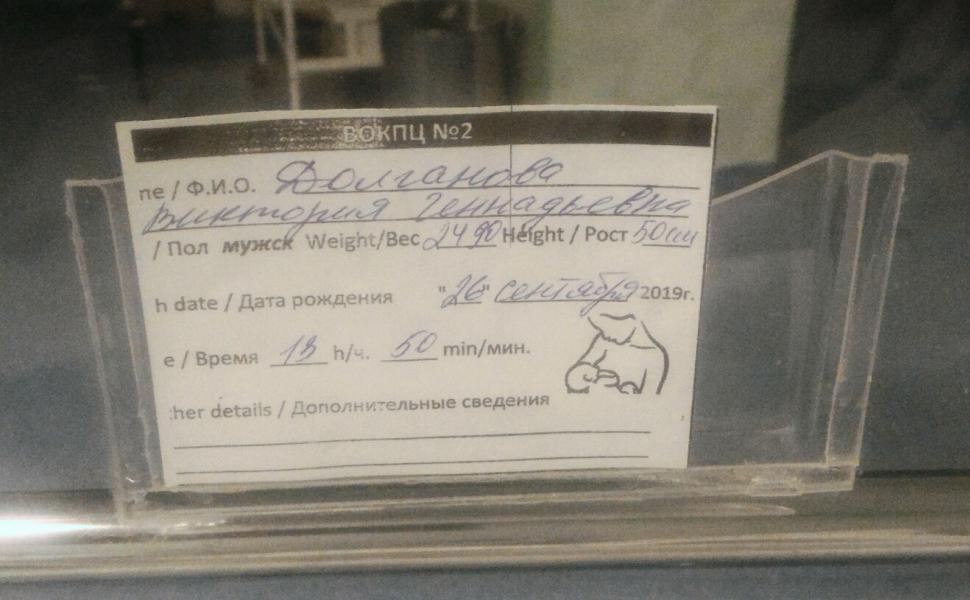 ВОКПЦ №2
пе / Ф.И.О. Долганова
Виктория Геннадьевна
/ Пол мужск Weight/Вес 2490 Height / Рост 50см
h date / Дата рождения "26" сентября 2019г.
е / Время 13 h/ч. 50 min/мин.
her details / Дополнительные сведения